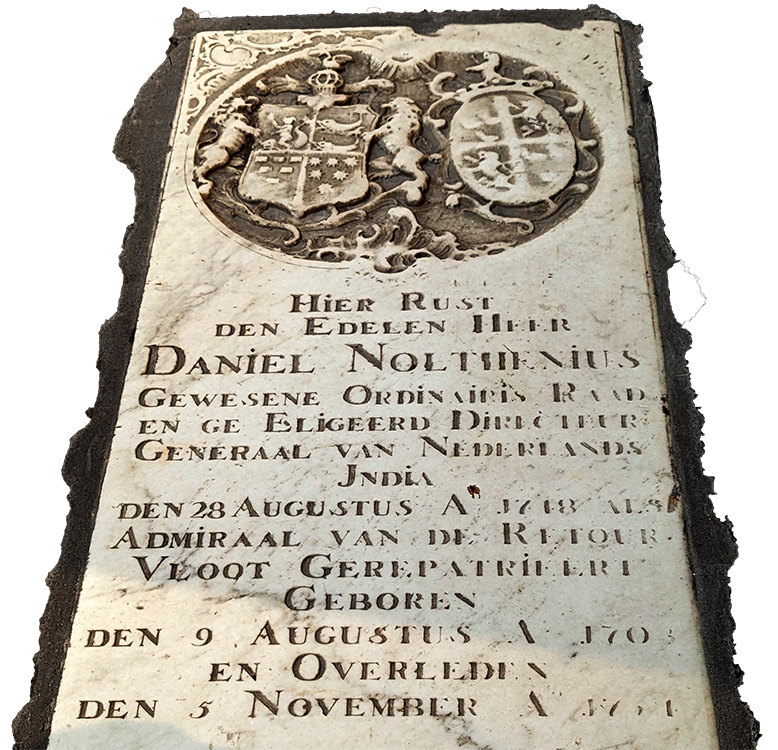 HIER RUST
DEN EDELEN HEER
DANIEL NOLTHENIUS
GEWESENE ORDINAIRIS RAAD
EN GE ELIGEERD DIRECTEUR
GENERAAL VAN NEDERLANDS
JNDIA
DEN 28 AUGUSTUS A° 1748 ALS
ADMIRAAL VAN DE RETOUR
VLOOT GEREPATRIEERT
GEBOREN
DEN 9 AUGUSTUS A°
EN OVERLEDEN
DEN 5 NOVEMBER A°